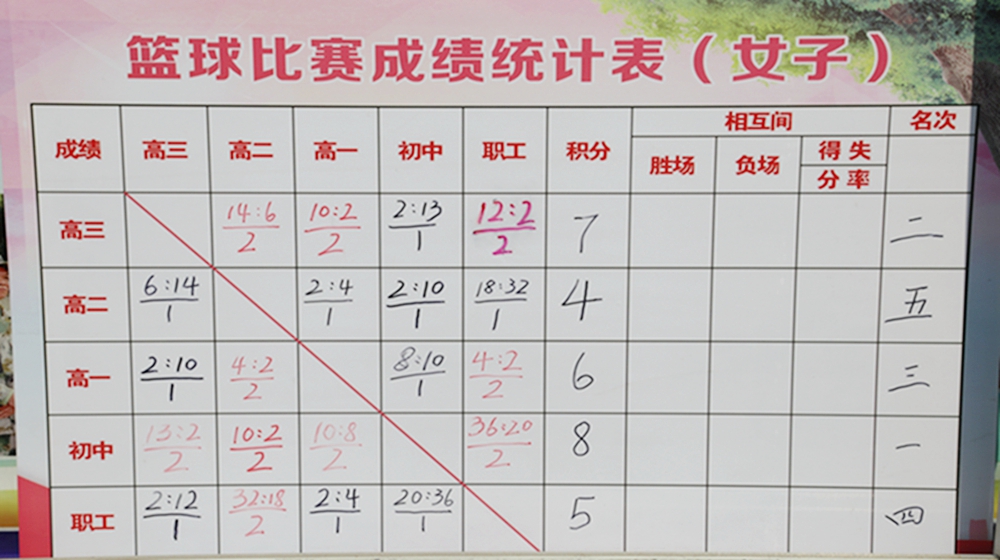 篮球比赛成绩统计表（女子）
成绩 高三 高二 高一 初中 职工 积分 相互间 名次
胜场 负场 得失分率
高三 14:6/2 10:2/2 2:13/1 12:2/2 7 二
高二 6:14/1 2:4/1 2:10/1 18:32/1 4 五
高一 2:10/1 4:2/2 8:10/1 4:2/2 6 三
初中 13:2/2 10:2/2 10:8/2 36:20/2 8 一
职工 2:12/1 32:18/2 2:4/1 20:36/1 5 四